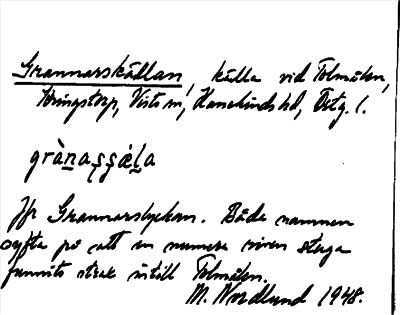 Grannarskällan, källa vid Tolmåten,
Kringstorp, Vists sn, Hanekinds hd, Östg. l.
gràn̲aʂʂæ̀l̲a
Jfr Grannarslyckan. Båda namnen
syfta på att en numera riven stuga
funnits strax intill Tolmåten.
M. Nordlund 1948.